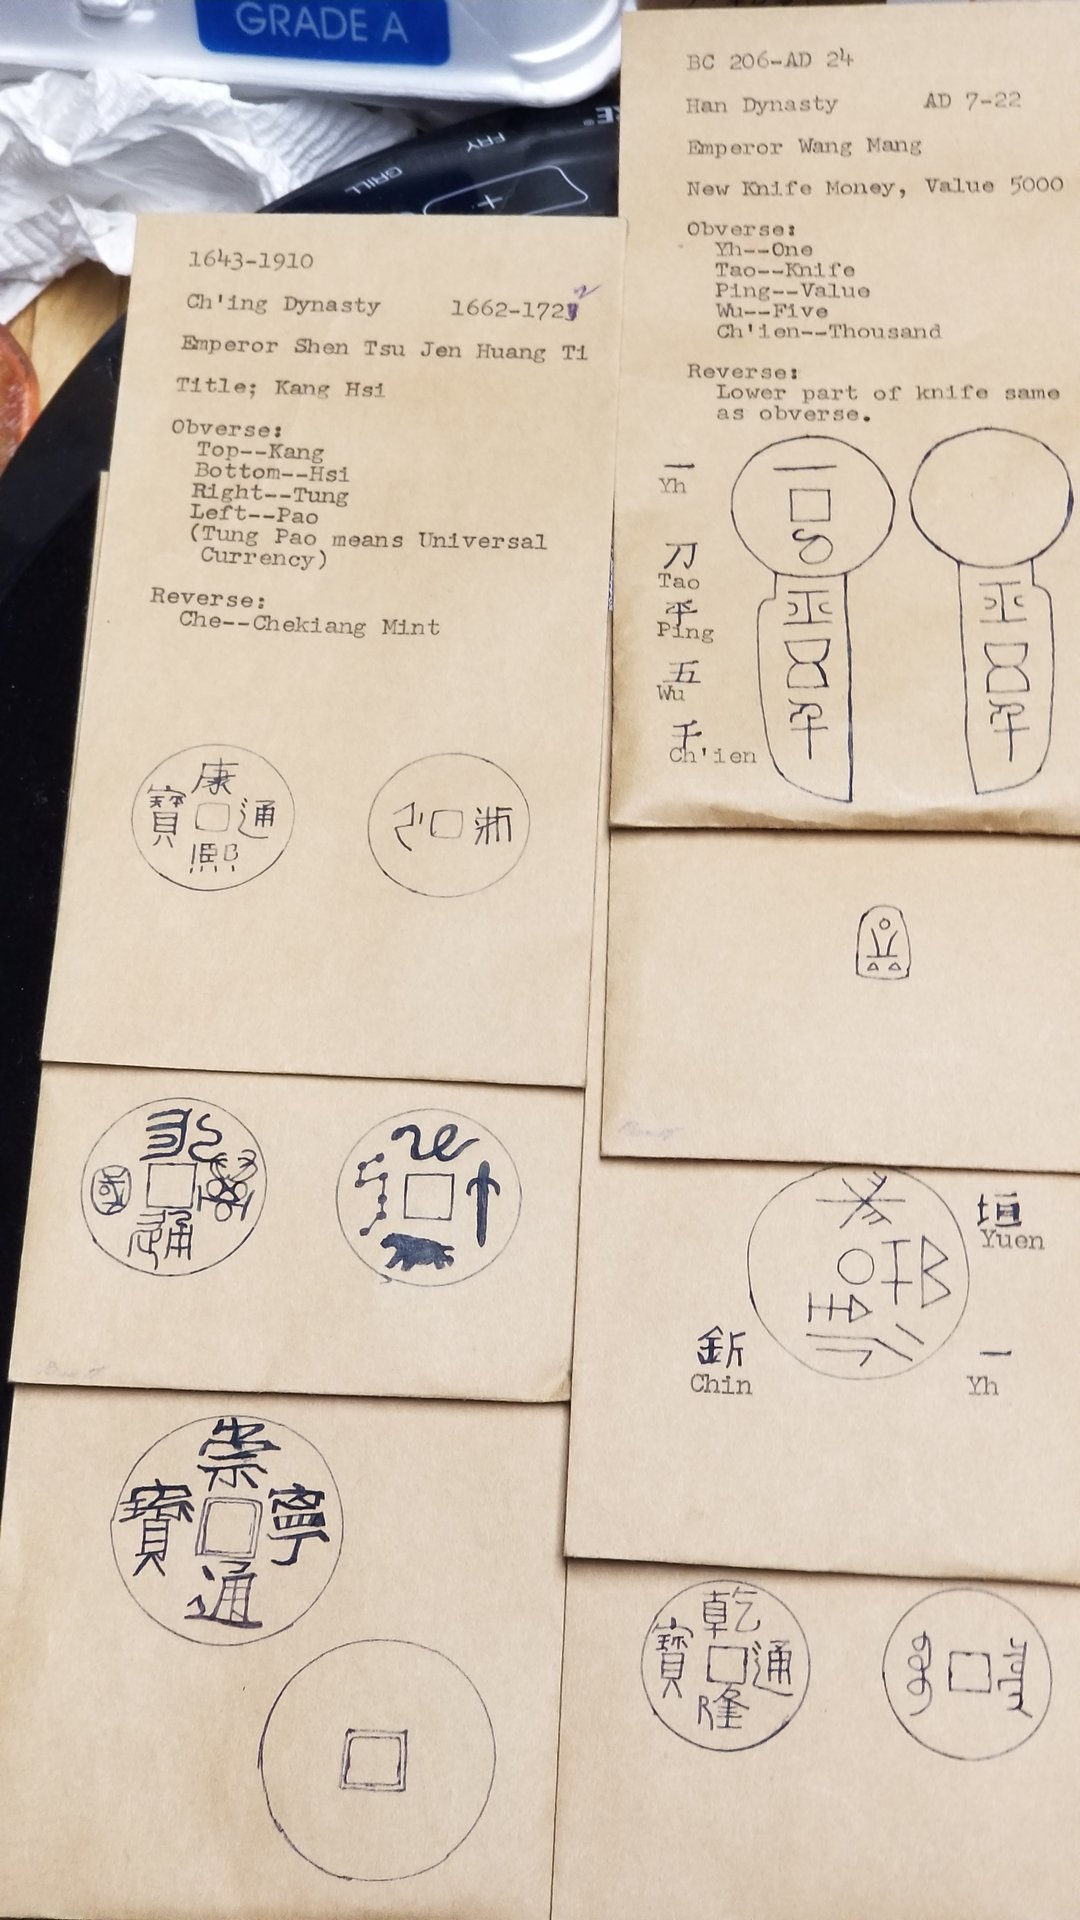 GRADE A
GRILL
FRY
RE®
BC 206-AD 24
Han Dynasty AD 7-22
Emperor Wang Mang
New Knife Money, Value 5000
Obverse:
Yh--One
Tao--Knife
Ping--Value
Wu--Five
Ch'ien--Thousand
Reverse:
Lower part of knife same
as obverse.
一
Yh
刀
Tao
平
Ping
五
Wu
千
Ch'ien
1643-1910
Ch'ing Dynasty 1662-1722
Emperor Shen Tsu Jen Huang Ti
Title; Kang Hsi
Obverse:
Top--Kang
Bottom--Hsi
Right--Tung
Left--Pao
(Tung Pao means Universal
Currency)
Reverse:
Che--Chekiang Mint
康
熙
通
寶
浙
垣
Yuen
釿
Chin
一
Yh
國
通
崇
寧
通
寶
乾
隆
通
寶